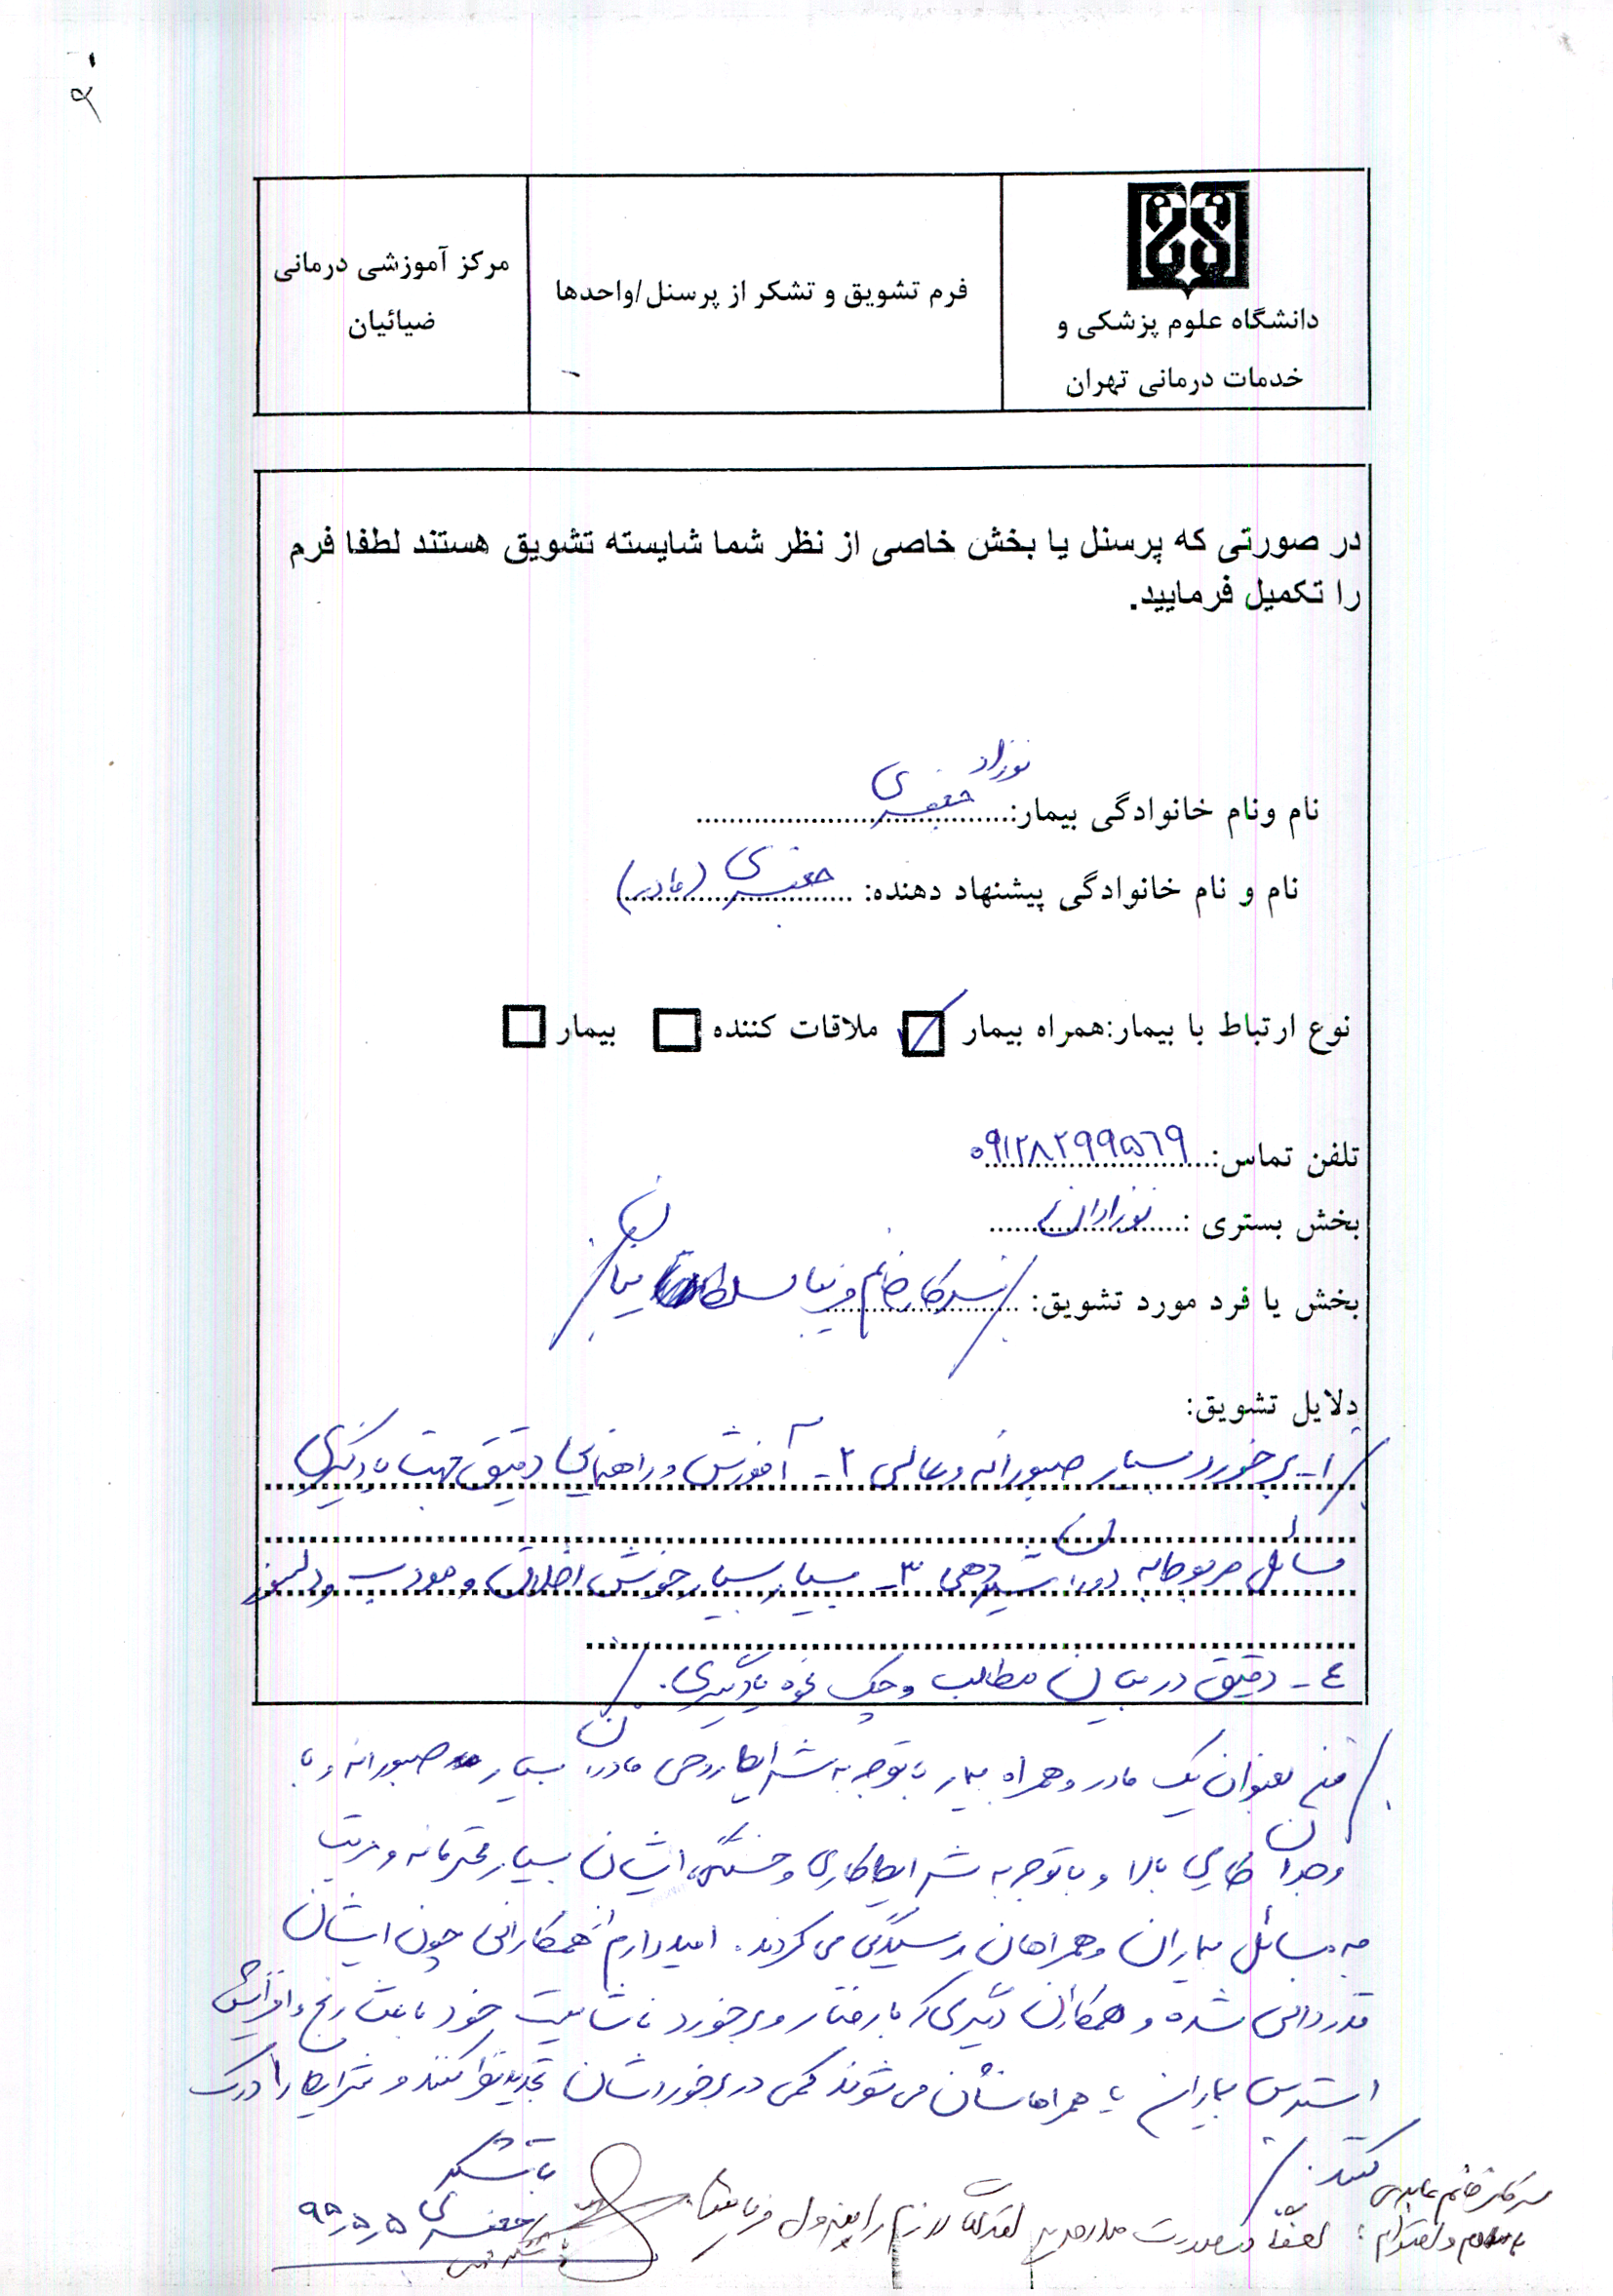 دانشگاه علوم پزشکی و
خدمات درمانی تهران
فرم تشویق و تشکر از پرسنل/واحدها
مرکز آموزشی درمانی
ضیائیان
در صورتی که پرسنل یا بخش خاصی از نظر شما شایسته تشویق هستند لطفا فرم
را تکمیل فرمایید.
نام ونام خانوادگی بیمار: نوزاد جعفری
نام و نام خانوادگی پیشنهاد دهنده: جعفری (مادر)
نوع ارتباط با بیمار:همراه بیمار ملاقات کننده بیمار
تلفن تماس: ۰۹۱۲۸۲۹۹۵۶۹
بخش بستری : نوزادان
بخش یا فرد مورد تشویق: سرکار خانم
دلایل تشویق:
۱- برخورد بسیار صبورانه و عالی ۲- آموزش و راهنمایی دقیق جهت یادگیری
مسائل مربوط به دوران شیردهی ۳- بسیار بسیار خوش اخلاق و مودب و دلسوز
۴- دقیق در بیان مطالب و چک نحوه یادگیری.
من بعنوان یک مادر و همراه بیمار با توجه به شرایط روحی مادران بسیار صبورانه و با
وجدان کاری بالا و با توجه به شرایط کاری و خستگی ایشان بسیار محترمانه و مرتب
به مسائل بیماران و همراهان رسیدگی می کردند. امیدوارم از همکارانی چون ایشان
قدردانی شده و همکاران دیگری که با رفتار و برخورد نامناسب خود باعث رنج و افزایش
استرس بیماران یا همراهانشان می شوند کمی در برخوردشان تجدیدنظر کنند و شرایط را درک
کنند.
با تشکر
جعفری
۹۵٫۵٫۵
سرکار خانم عابدی
با سلام و احترام؛ لطفاً در صورت صلاحدید لازم را مبذول فرمائید.